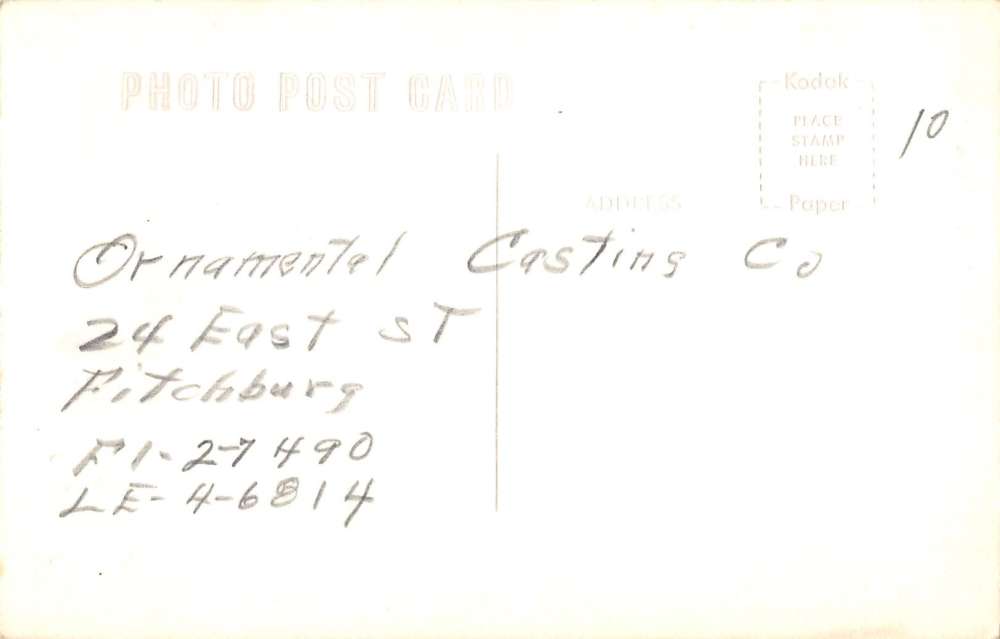 PHOTO POST CARD
Kodak
PLACE
STAMP
HERE
Paper
10
ADDRESS
Ornamental Casting Co
24 East ST
Fitchburg
FI-2-7490
LE-4-6814